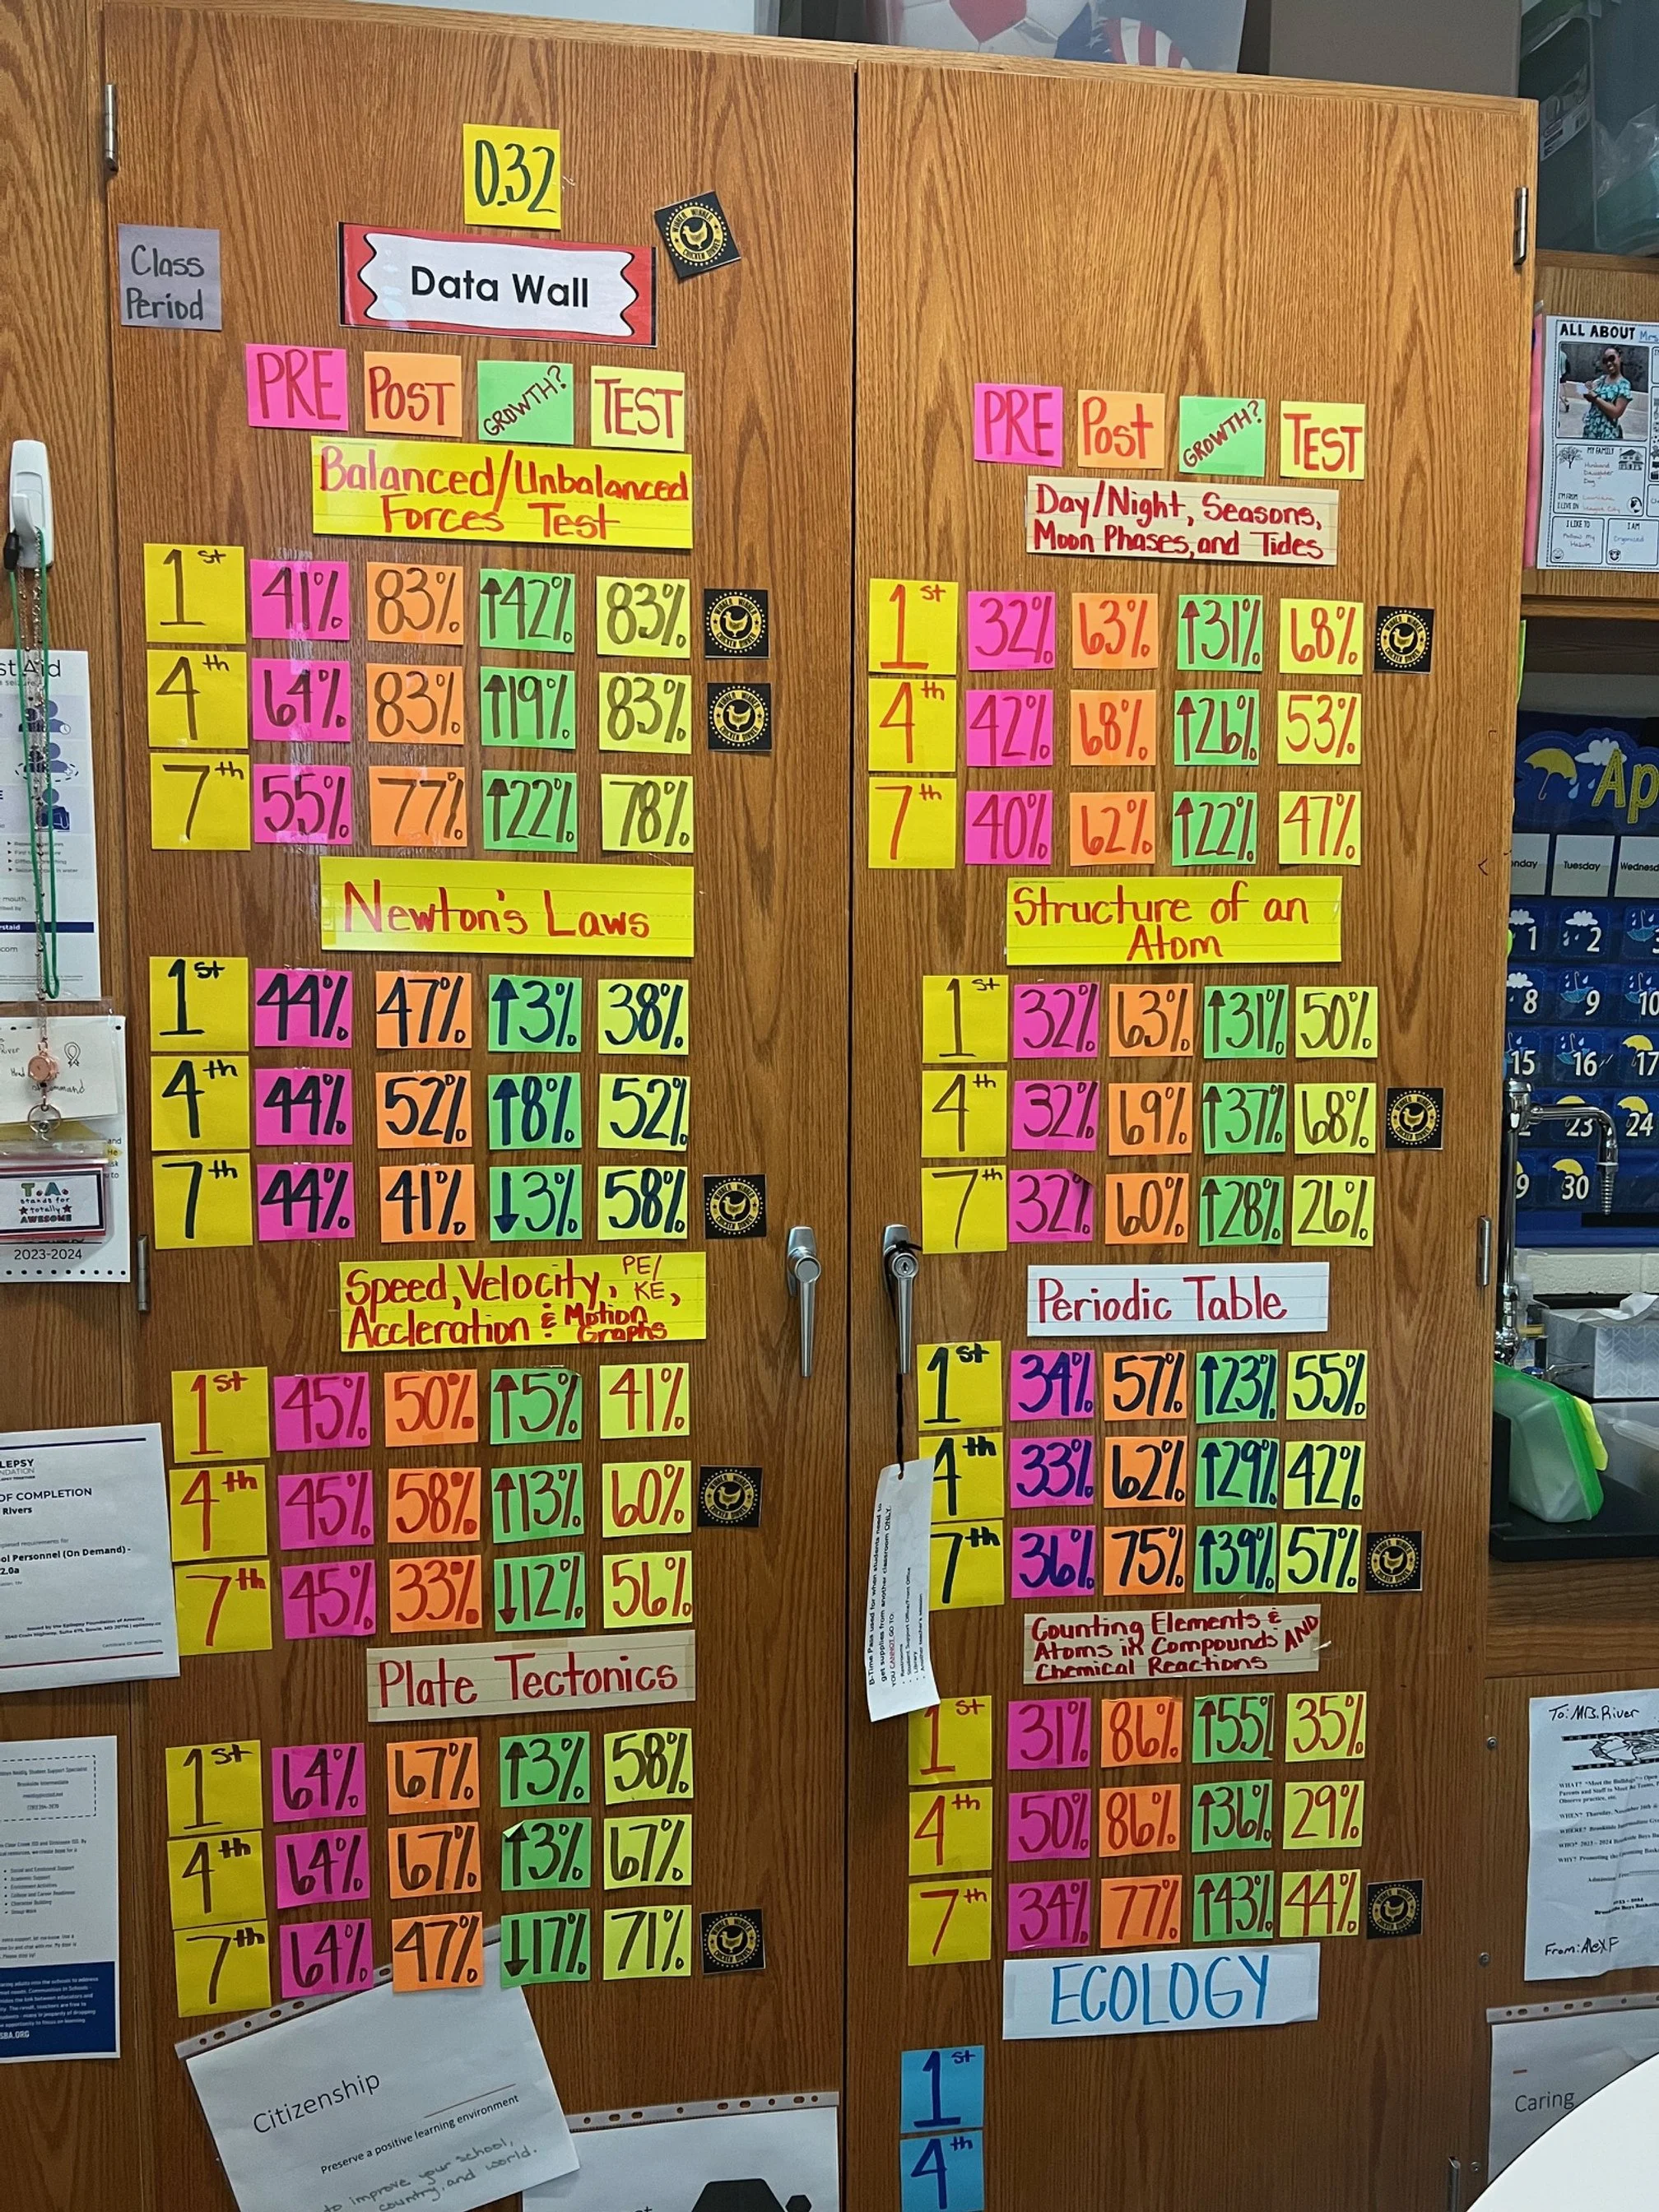 0.32
WINNER WINNER
CHICKEN DINNER
Class
Period
Data Wall
PRE POST GROWTH? TEST
Balanced/Unbalanced
Forces Test
1st 41% 83% ↑42% 83%
4th 64% 83% ↑19% 83%
7th 55% 77% ↑22% 78%
Newton's Laws
1st 44% 47% ↑3% 38%
4th 44% 52% ↑8% 52%
7th 44% 41% ↓3% 58%
Speed, Velocity, PE/
KE,
Accleration & Motion
Graphs
1st 45% 50% ↑5% 41%
4th 45% 58% ↑13% 60%
7th 45% 33% ↓12% 56%
Plate Tectonics
1st 64% 67% ↑3% 58%
4th 64% 67% ↑3% 67%
7th 64% 47% ↓17% 71%
Citizenship
Preserve a positive learning environment
to improve your school,
country, and world.
PRE Post GROWTH? TEST
Day/Night, Seasons,
Moon Phases, and Tides
1st 32% 63% ↑31% 68%
4th 42% 68% ↑26% 53%
7th 40% 62% ↑22% 47%
Structure of an
Atom
1st 32% 63% ↑31% 50%
4th 32% 69% ↑37% 68%
7th 32% 60% ↑28% 26%
Periodic Table
1st 34% 57% ↑23% 55%
4th 33% 62% ↑29% 42%
7th 36% 75% ↑39% 57%
Counting Elements &
Atoms in Compounds AND
Chemical Reactions
1st 31% 86% ↑55% 35%
4th 50% 86% ↑36% 29%
7th 34% 77% ↑43% 44%
ECOLOGY
1st
4th
T.A.
stands for
totally
AWESOME
2023-2024
OF COMPLETION
Rivers
ALL ABOUT Mrs.
MY FAMILY
Husband
Daughter
Dog
I LIKE TO
I AM
Organized
Ap
Tuesday
1 2
8 9 10
15 16 17
23 24
30
To: Mrs. River
From: Alex F
Caring